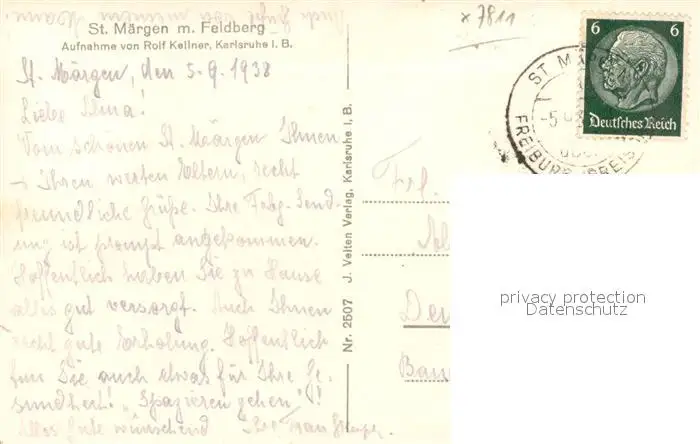 Auch Gruß von meinem Mann
St. Märgen m. Feldberg
Aufnahme von Rolf Kellner, Karlsruhe i. B.
St. Märgen, den 5.9.1938
Liebe
Vom schönen St. Märgen Ihnen
+ Ihren werten Eltern, recht
freundliche Grüße. Ihre Send-
ung ist prompt angekommen.
Hoffentlich haben Sie zu Hause
alles gut versorgt. Auch Ihnen
recht gute Erholung. Hoffentlich
tun Sie auch etwas für Ihre Ge-
sundheit! "Spazieren gehen"!
Alles Gute wünschend Ihre Frau
Nr. 2507 J. Velten Verlag, Karlsruhe i. B.
x 7811
6 6
Deutsches Reich
ST. MÄRGEN
-5
FREIBURG
Frl.
privacy protection
Datenschutz